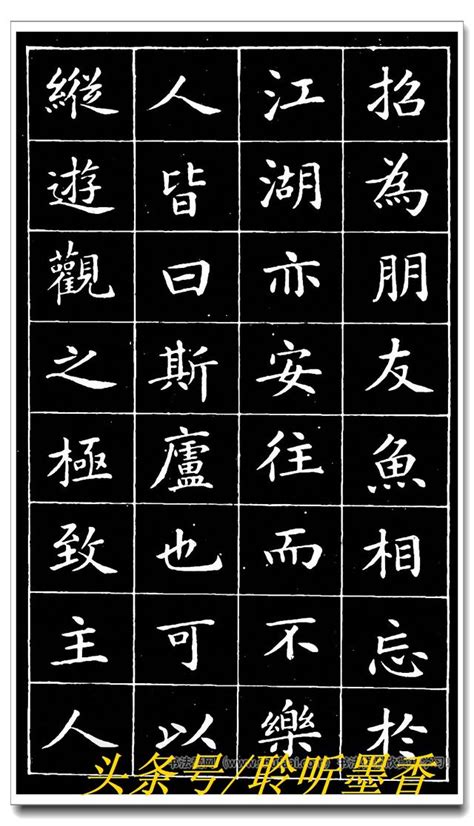 招為朋友魚相忘於
江湖亦安往而不樂
人皆曰斯廬也可以
縱遊觀之極致主人
头条号/聆听墨香